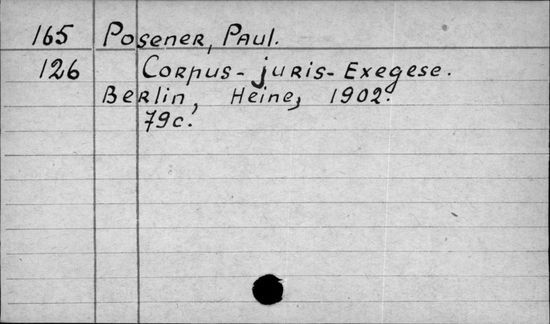 165 Posener, Paul.
126 Corpus-juris-Exegese.
Berlin, Heine, 1902.
79c.